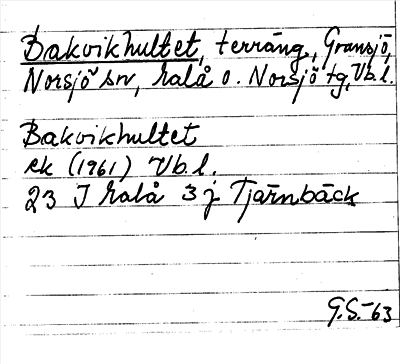 Bakvikhultet, terräng, Gransjö,
Norsjö sn, Malå o. Norsjö tg, Vb.l.
Bakvikhultet
ek (1961) Vb.l.
23 J Malå 3 j Tjärnbäck
G.S.-63